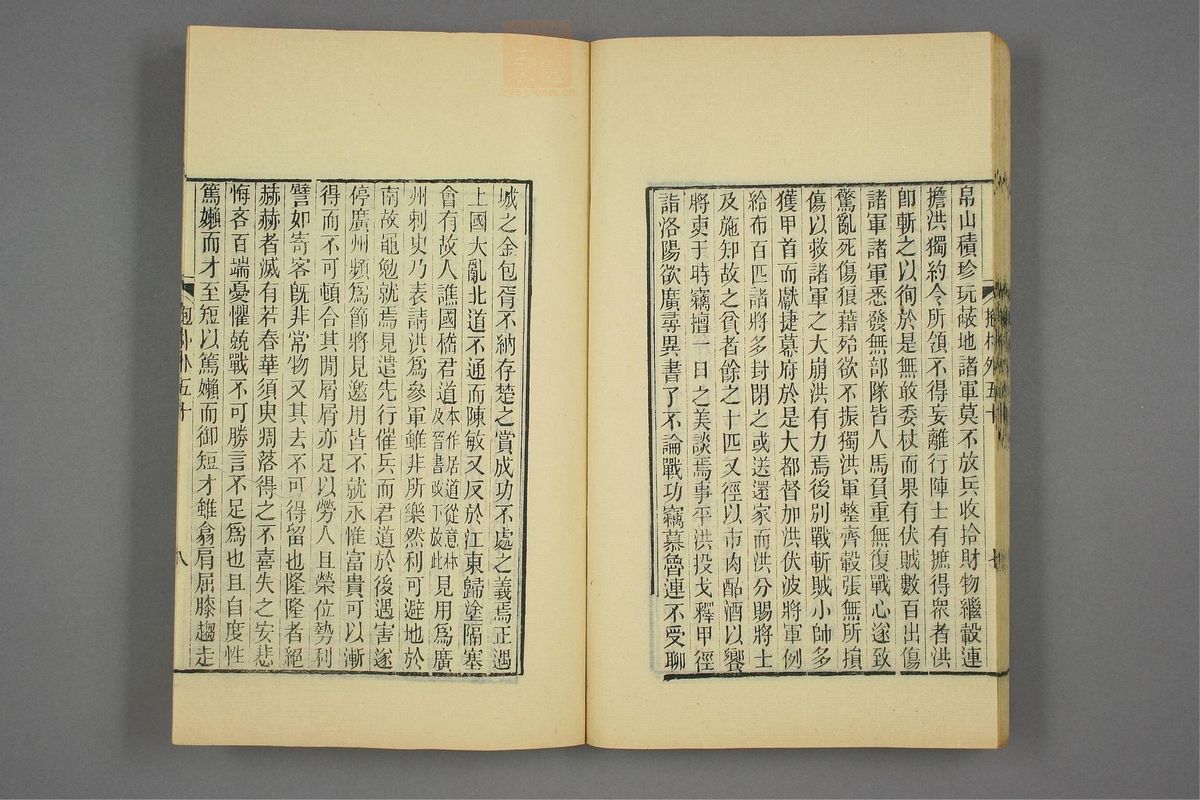 帛山積珍玩蔽地諸軍莫不放兵收拾財物繼轂連
擔洪獨約令所領不得妄離行陣士有摭得衆者洪
卽斬之以徇於是無敢委杖而果有伏賊數百出傷
諸軍諸軍悉發無部隊皆人馬負重無復戰心遂致
驚亂死傷狼藉殆欲不振獨洪軍整齊轂張無所損
傷以救諸軍之大崩洪有力焉後別戰斬賊小帥多
獲甲首而獻捷幕府於是大都督加洪伏波將軍例
給布百匹諸將多封閉之或送還家而洪分賜將士
及施知故之貧者餘之十匹又徑以市肉酤酒以饗
將吏于時竊擅一日之美談焉事平洪投戈釋甲徑
詣洛陽欲廣尋異書了不論戰功竊慕魯連不受聊
抱朴外五十
七
城之金包胥不納存楚之賞成功不處之義焉正遇
上國大亂北道不通而陳敏又反於江東歸塗隔塞
會有故人譙國嵇君道本作居道從意林及晉書改下放此見用爲廣
州刺史乃表請洪爲參軍雖非所樂然利可避地於
南故黽勉就焉見遣先行催兵而君道於後遇害遂
停廣州頻爲節將見邀用皆不就永惟富貴可以漸
得而不可頓合其閒屑屑亦足以勞人且榮位勢利
譬如寄客旣非常物又其去不可得留也隆隆者絕
赫赫者滅有若春華須臾凋落得之不喜失之安悲
悔吝百端憂懼兢戰不可勝言不足爲也且自度性
篤嬾而才至短以篤嬾而御短才雖翕肩屈膝趨走
抱朴外五十
八